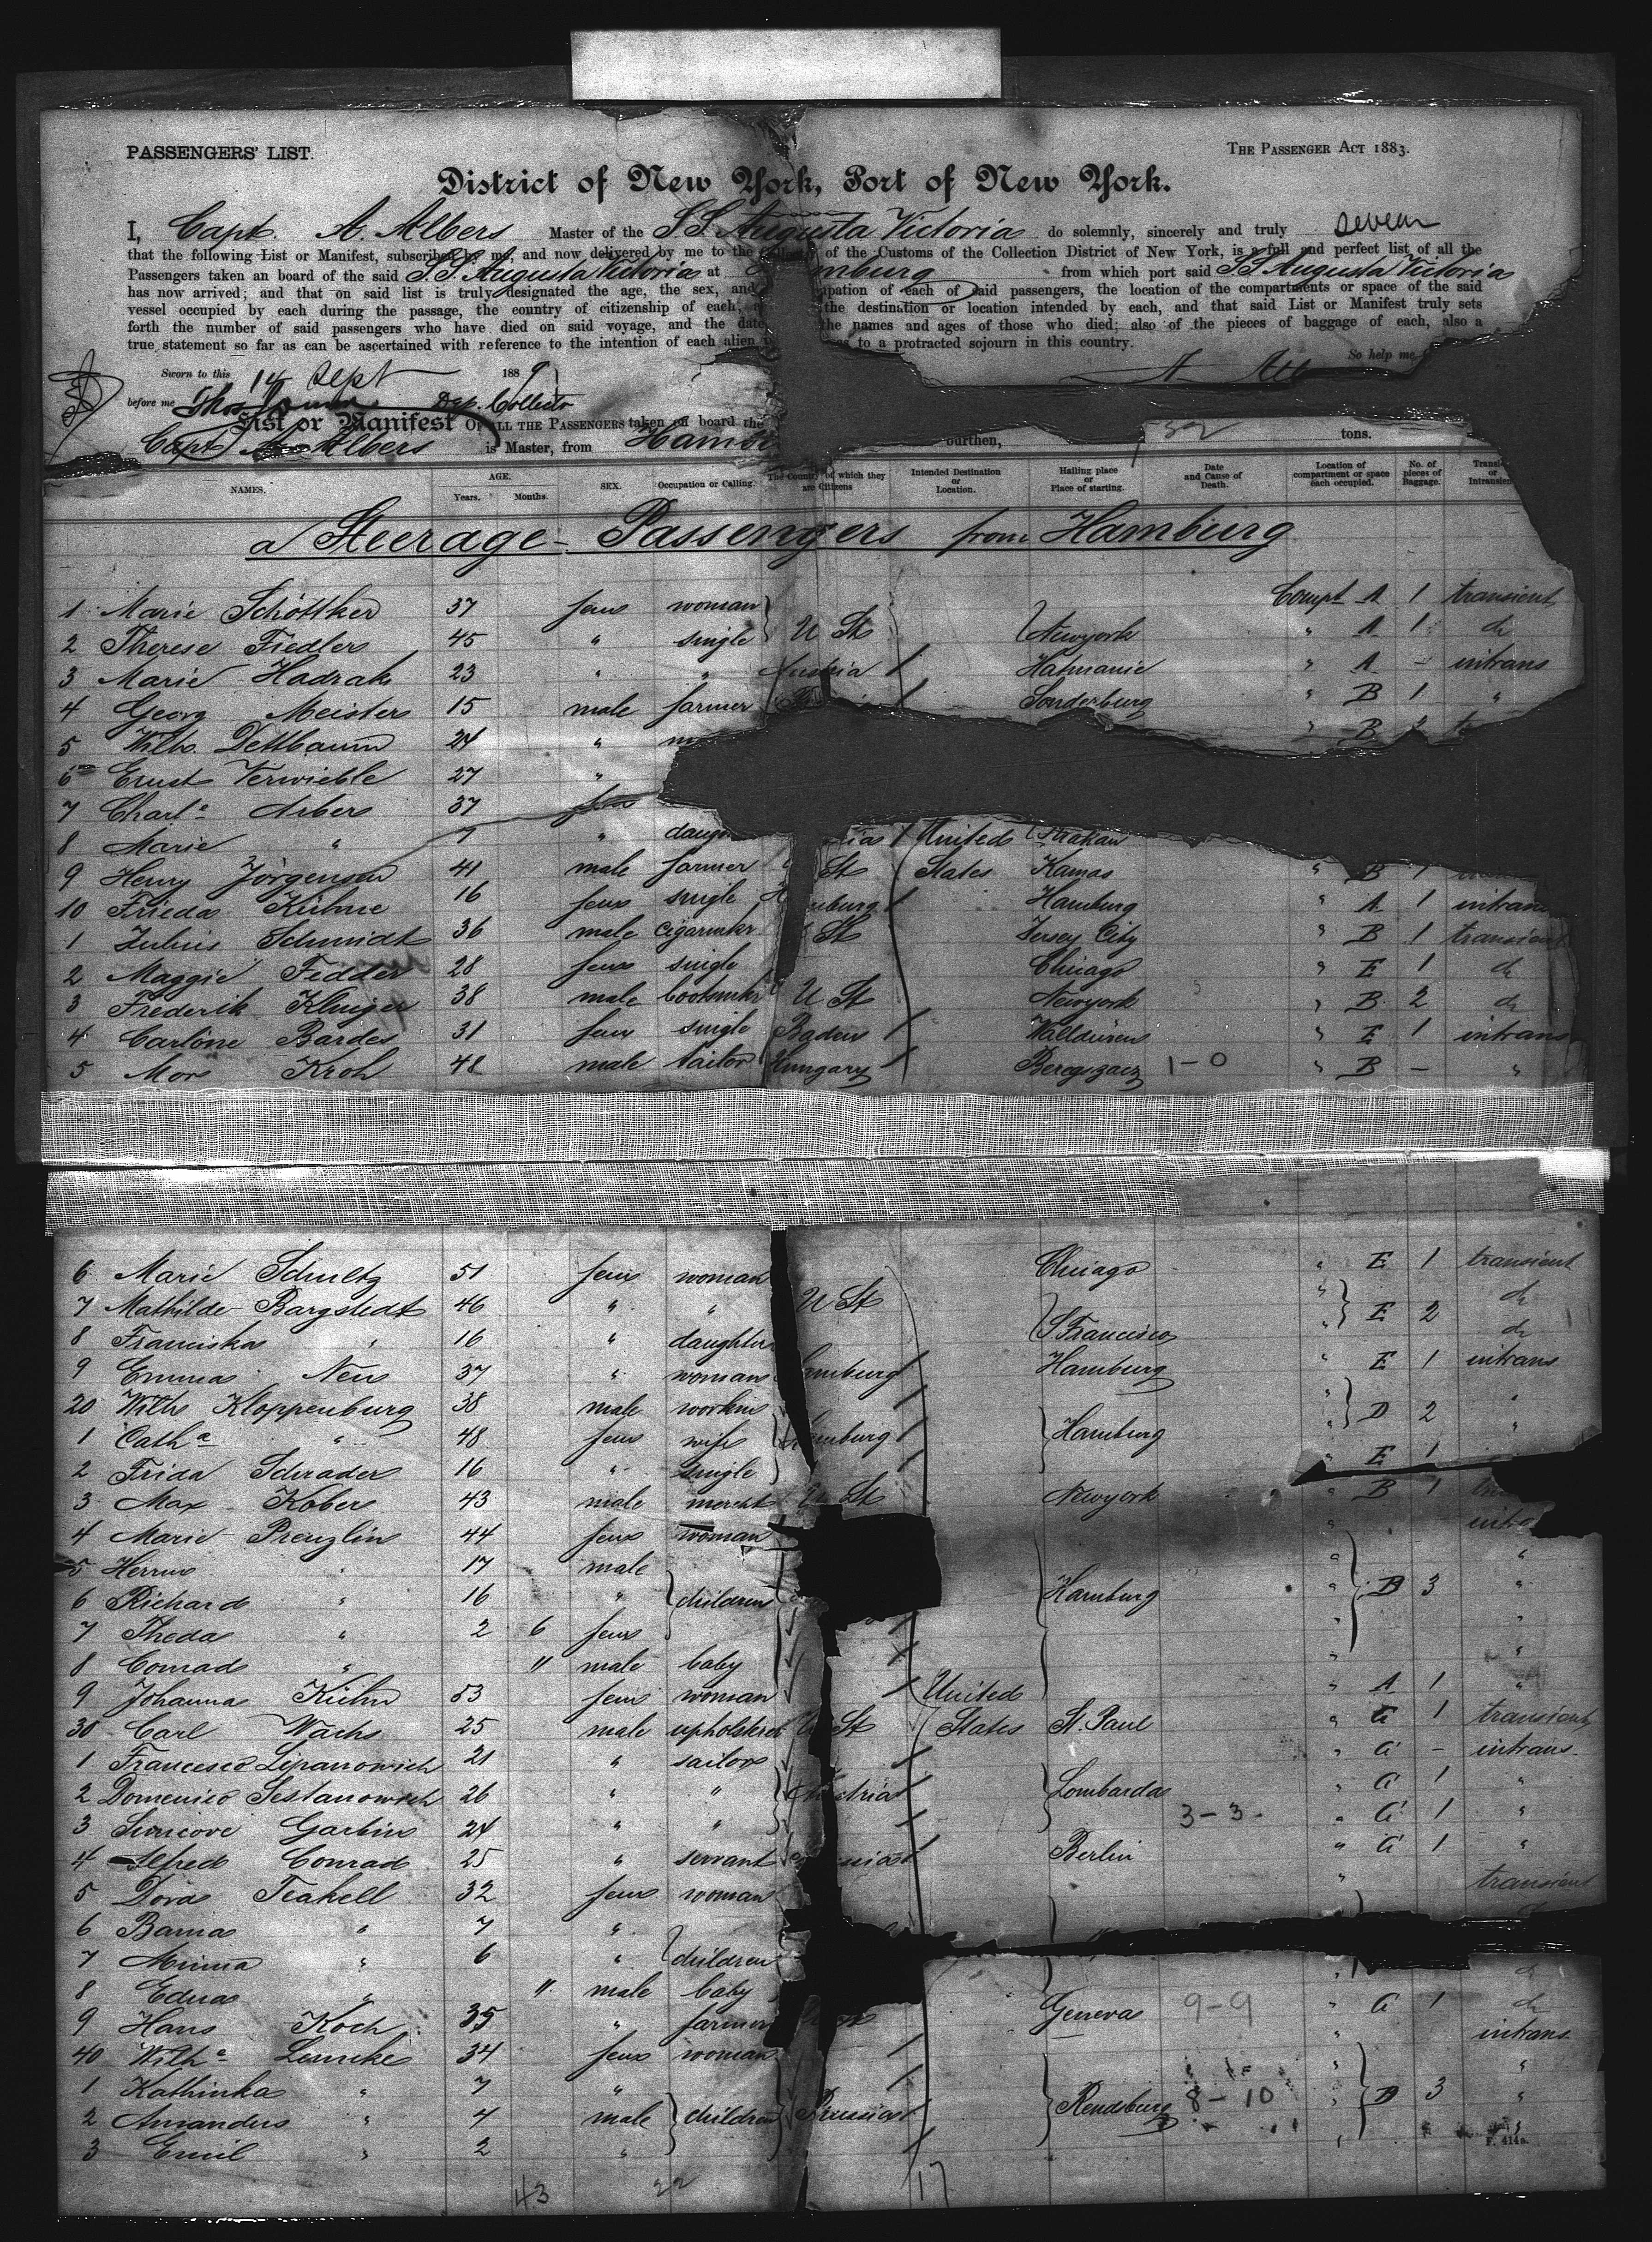 PASSENGERS' LIST.
THE PASSENGER ACT 1883.
District of New York, Port of New York.
I, Capt. A. Albers Master of the S.S. Augusta Victoria do solemnly, sincerely and truly swear
that the following List or Manifest, subscribed by me, and now delivered by me to the of the Customs of the Collection District of New York, is a full and perfect list of all the
Passengers taken an board of the said S.S. Augusta Victoria at mburg from which port said S.S Augusta Victoria
has now arrived; and that on said list is truly designated the age, the sex, and pation of each of said passengers, the location of the compartments or space of the said
vessel occupied by each during the passage, the country of citizenship of each, the destination or location intended by each, and that said List or Manifest truly sets
forth the number of said passengers who have died on said voyage, and the date the names and ages of those who died; also of the pieces of baggage of each, also a
true statement so far as can be ascertained with reference to the intention of each alien to a protracted sojourn in this country.
So help me
Sworn to this 14 Sept 1889
before me Thos. Dep. Collector
A. Alb
List or Manifest OF ALL THE PASSENGERS taken on board the
Capt A. Albers is Master, from Hamb ourthen, tons.
NAMES. AGE. Years. Months. SEX. Occupation or Calling. The Country of which they are Citizens Intended Destination or Location. Hailing place or Place of starting. Date and Cause of Death. Location of compartment or space each occupied. No. of pieces of Baggage. Transi or Intransien
a Steerage-Passengers from Hamburg
1 Marie Schöttker 37 fem woman Compt A 1 transient
2 Therese Fiedler 45 " single U St Newyork " A 1 do
3 Marie Hadrak 23 " " Austria Hatmanie " A - intrans
4 Georg Meister 15 male farmer Sonderburg " B 1 "
5 Wilh. Dettbaum 24 " " B
6 Ernst Verwieble 27 "
7 Charl.e Arbers 37 fem
8 Marie " 7 " daug ia United
9 Henry Jörgensen 41 male farmer St States Kamas " B 1
10 Frieda Kühne 16 fem single burg Hamburg " A 1 intrans
1 Julius Schmidt 36 male cigarmkr St Jersey City " B 1 transient
2 Maggie Fedder 28 fem single Chicago " E 1 do
3 Frederik Kluiger 38 male bootmkr U St Newyork " B 2 do
4 Carline Bardes 31 fem single Baden Walldüren " E 1 intrans
5 Mor Kroh 48 male tailor Hungary Beregszacz 1-0 " B - "
6 Marie Schultz 51 fem woman Chicago " E 1 transient
7 Mathilde Bargstedt 46 " " U St " do
8 Franciska " 16 " daughter S. Francisco " E 2 do
9 Emma Neu 37 " woman mburg Hamburg " E 1 intrans
20 Wilh Kloppenburg 38 male workm " "
1 Cath.a " 48 fem wife Hamburg Hamburg " D 2 "
2 Frida Schrader 16 " single " E 1
3 Max Kober 43 male mercht U St Newyork " B 1
4 Marie Prenzlin 44 fem woman " intr
5 Herrm " 17 male " "
6 Richard " 16 " children Hamburg " B 3 "
7 Theda " 2 6 fem " "
8 Conrad " 11 male baby " "
9 Johanna Kühn 53 fem woman United " A 1 "
30 Carl Wachs 25 male upholstrer U St States St. Paul " G 1 transient
1 Francesco Lipanowich 21 " sailor " G - intrans.
2 Domenico Sestanowich 26 " " Austria Lombarda " G 1 "
3 Simcove Garbin 24 " " 3-3- " G 1 "
4 Alfred Conrad 25 " servant Berlin " G 1 "
5 Dora Teakell 32 fem woman " transient
6 Bama " 7 "
7 Minna " 6 " children
8 Edna " 11 male baby do
9 Hans Koch 35 " farmer Geneva 9-9 " G 1 do
40 Wilh.e Lemcke 34 fem woman " intrans
1 Kathinka " 7 " " "
2 Amandus " 4 male children Prussia Rendsburg 8-10 " D 3 "
3 Emil " 2 " " "
F. 414a.
43 22 17